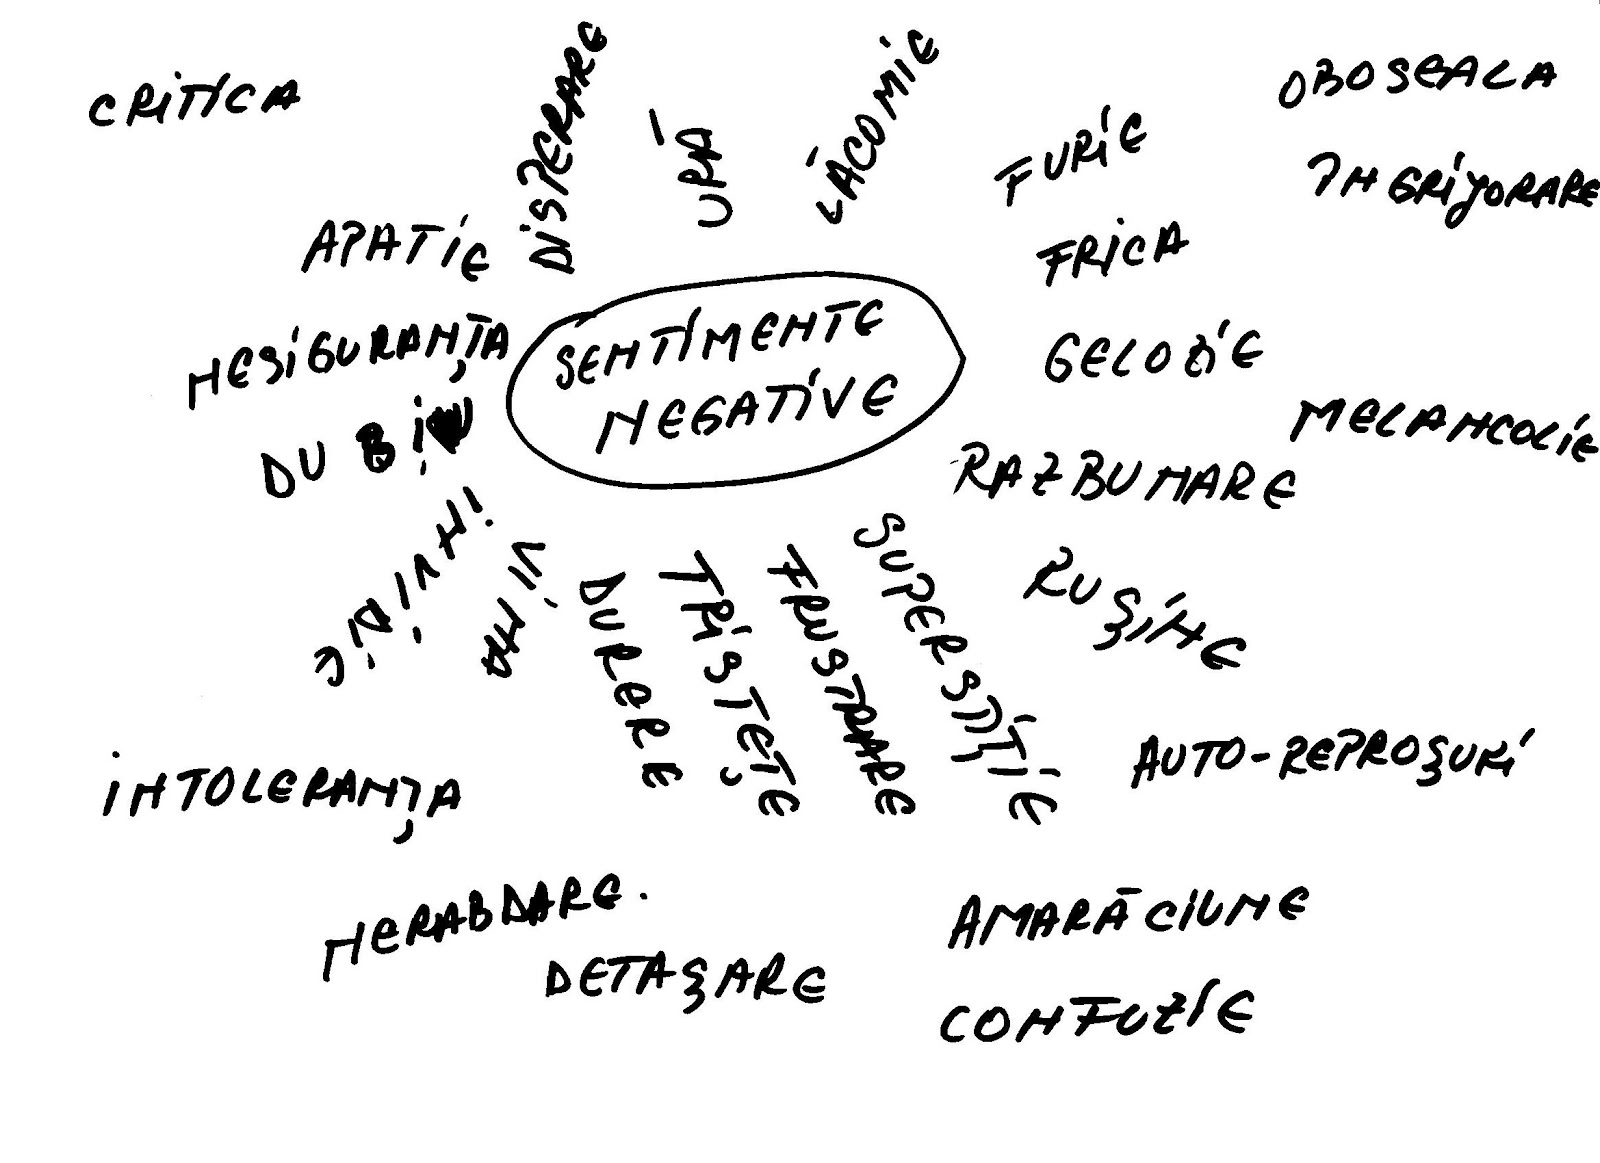 CRITICA
DISPERARE
URĂ
LĂCOMIE
OBOSEALA
FURIE
INGRIJORARE
APATIE
FRICA
NESIGURANȚA
SENTIMENTE
NEGATIVE
GELOZIE
DUBIU
MELANCOLIE
RAZBUNARE
INVIDIE
VINA
DURERE
TRISTEȚE
FRUSTRARE
SUPERSTIȚIE
RUȘINE
INTOLERANȚA
AUTO-REPROȘURI
NERABDARE.
DETAȘARE
AMARĂCIUNE
CONFUZIE